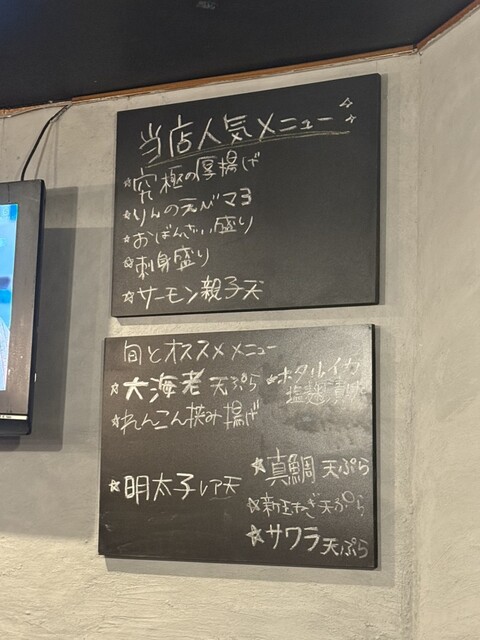 当店人気メニュー
☆究極の厚揚げ
☆りんのえびマヨ
☆おばんざい盛り
☆刺身盛り
☆サーモン親子天
旬とオススメメニュー
☆大海老天ぷら
☆ホタルイカ
塩麹漬け
☆れんこん挟み揚げ
☆明太子レア天
☆真鯛天ぷら
☆新玉ねぎ天ぷら
☆サワラ天ぷら